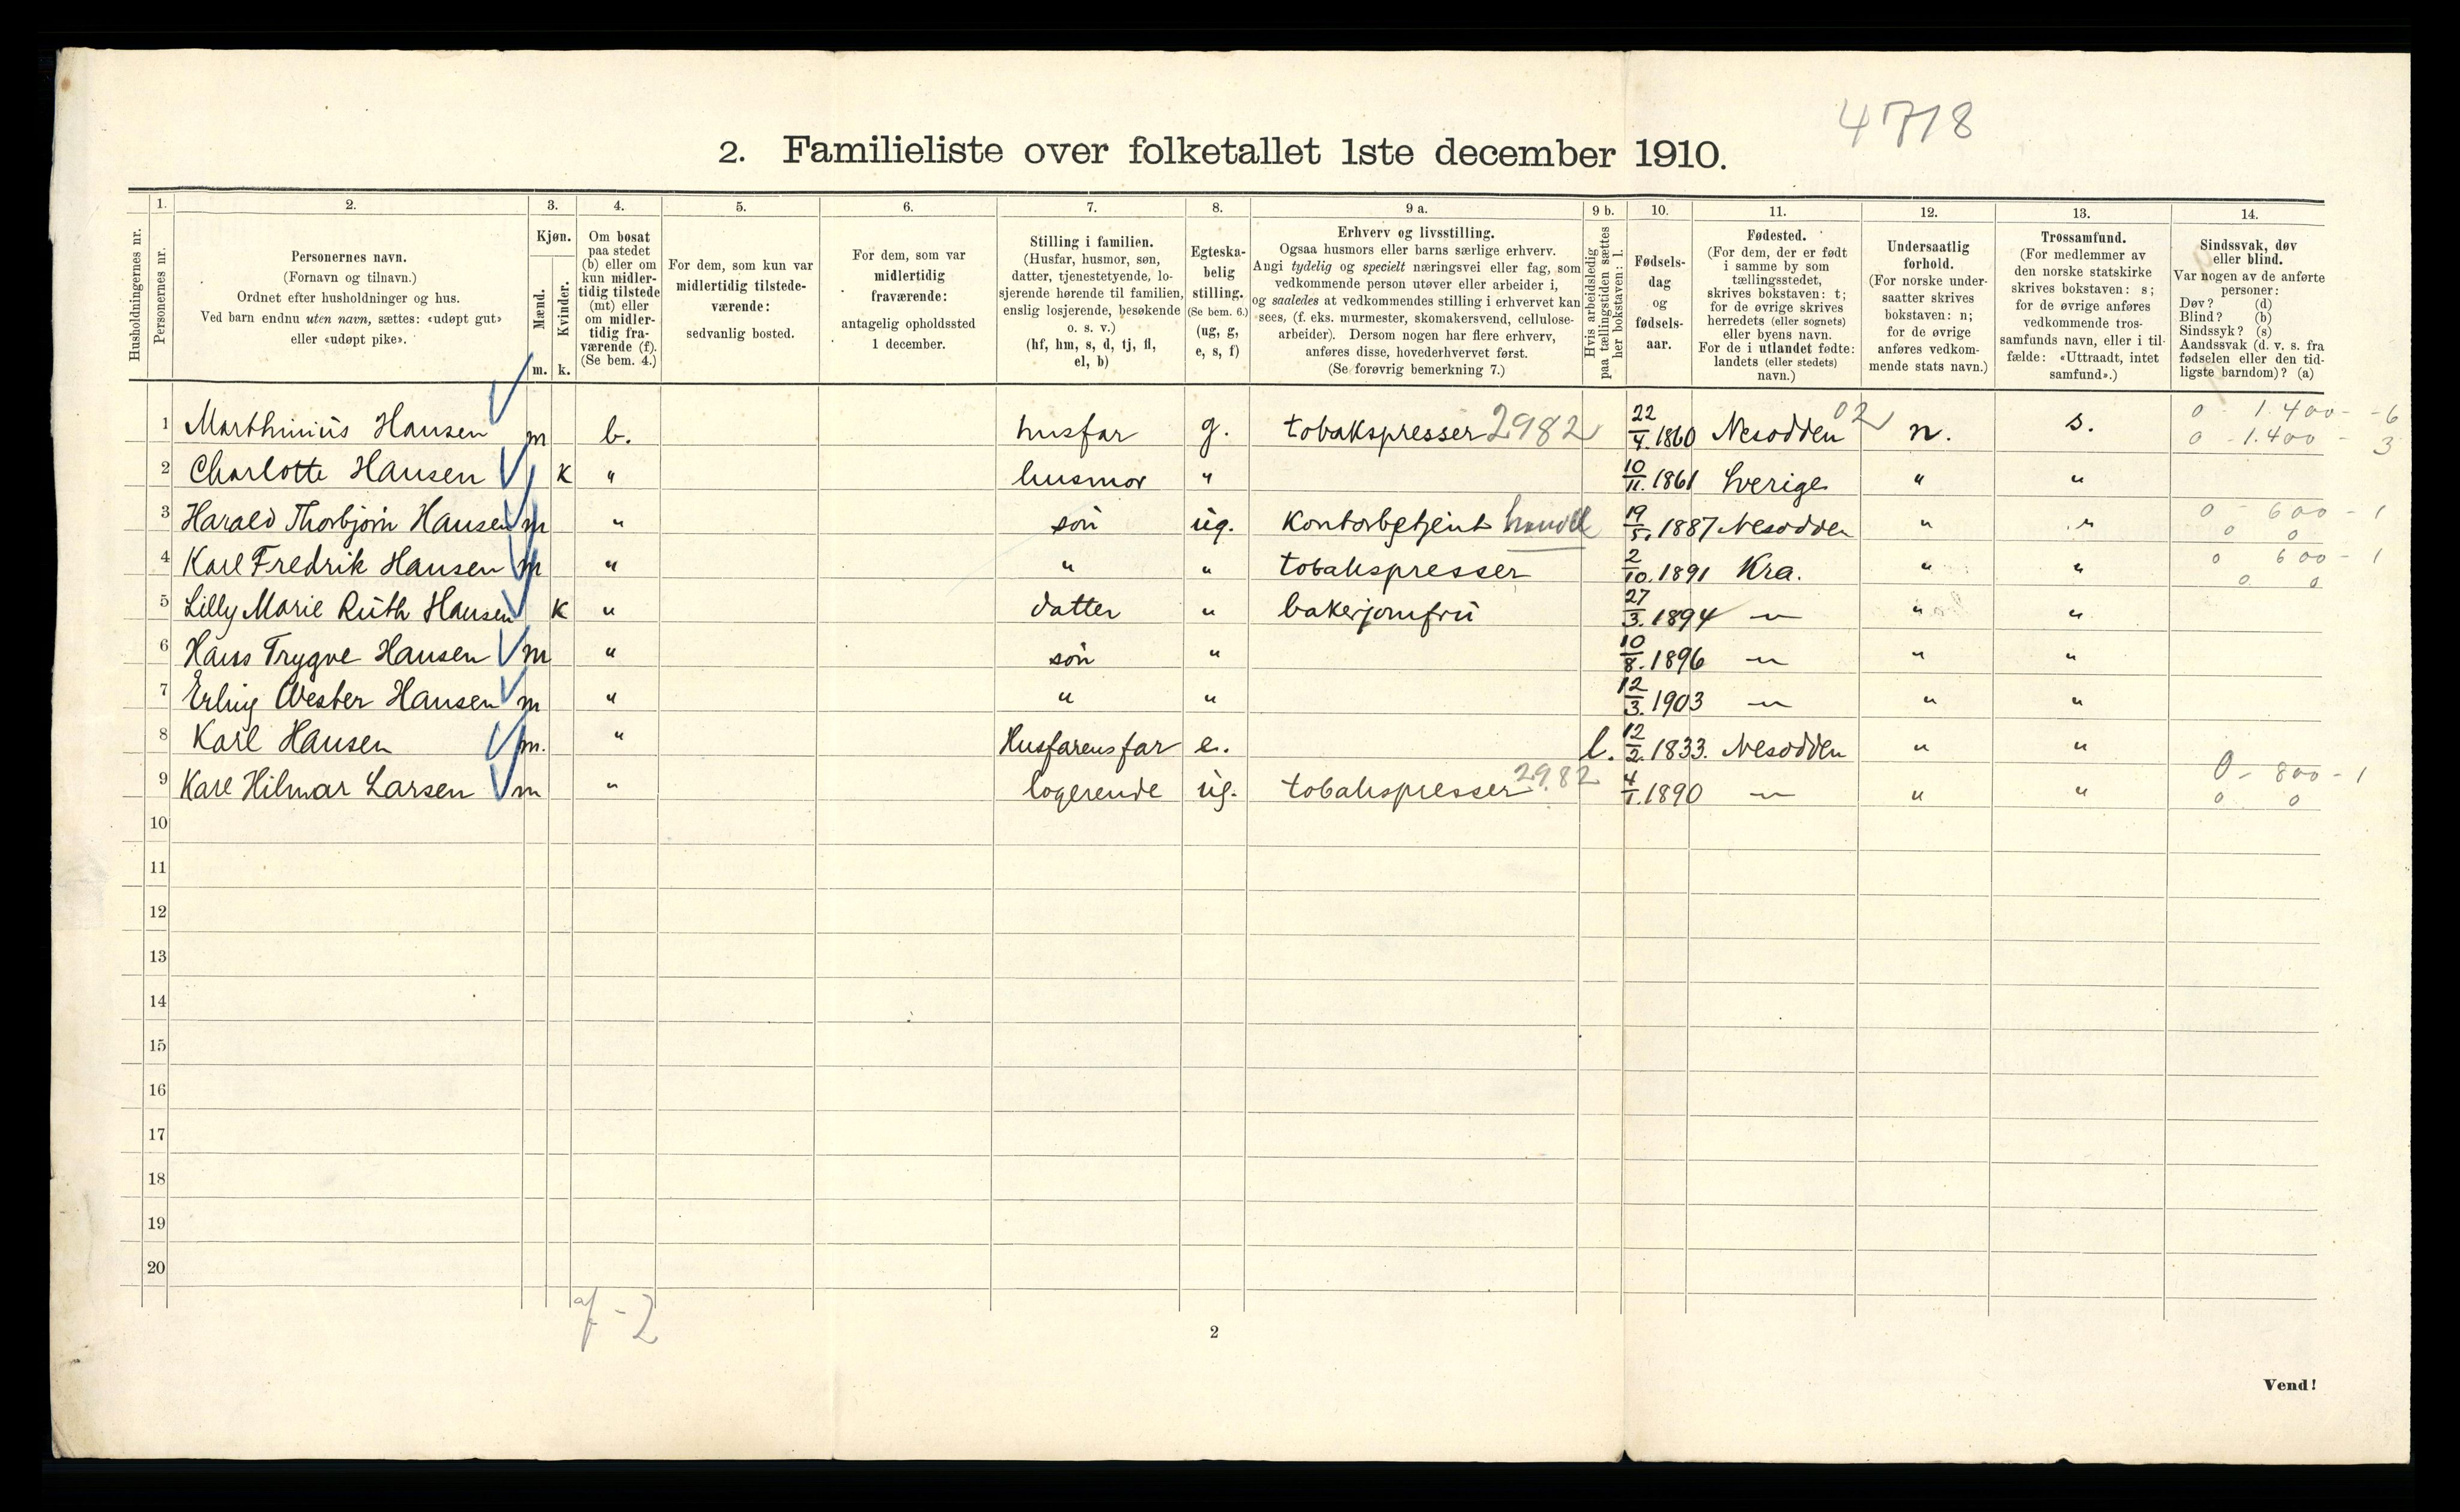 4718
2. Familieliste over folketallet 1ste december 1910.
Husholdningernes nr.
1. Personernes nr.
2. Personernes navn. (Fornavn og tilnavn.) Ordnet efter husholdninger og hus. Ved barn endnu uten navn, sættes: «udøpt gut» eller «udøpt pike».
3. Kjøn. Mænd. m. Kvinder. k.
4. Om bosat paa stedet (b) eller om kun midlertidig tilstede (mt) eller om midlertidig fraværende (f). (Se bem. 4.)
5. For dem, som kun var midlertidig tilstedeværende: sedvanlig bosted.
6. For dem, som var midlertidig fraværende: antagelig opholdssted 1 december.
7. Stilling i familien. (Husfar, husmor, søn, datter, tjenestetyende, losjerende hørende til familien, enslig losjerende, besøkende o. s. v.) (hf, hm, s, d, tj, fl, el, b)
8. Egteskabelig stilling. (Se bem. 6.) (ug, g, e, s, f)
9 a. Erhverv og livsstilling. Ogsaa husmors eller barns særlige erhverv. Angi tydelig og specielt næringsvei eller fag, som vedkommende person utøver eller arbeider i, og saaledes at vedkommendes stilling i erhvervet kan sees, (f. eks. murmester, skomakersvend, cellulosearbeider). Dersom nogen har flere erhverv, anføres disse, hovederhvervet først. (Se forøvrig bemerkning 7.)
9 b. Hvis arbeidsledig paa tællingstiden sættes her bokstaven: l.
10. Fødselsdag og fødselsaar.
11. Fødested. (For dem, der er født i samme by som tællingsstedet, skrives bokstaven: t; for de øvrige skrives herredets (eller sognets) eller byens navn. For de i utlandet fødte: landets (eller stedets) navn.)
12. Undersaatlig forhold. (For norske undersaatter skrives bokstaven: n; for de øvrige anføres vedkommende stats navn.)
13. Trossamfund. (For medlemmer av den norske statskirke skrives bokstaven: s; for de øvrige anføres vedkommende trossamfunds navn, eller i tilfælde: «Uttraadt, intet samfund».)
14. Sindssvak, døv eller blind. Var nogen av de anførte personer: Døv? (d) Blind? (b) Sindssyk? (s) Aandssvak (d. v. s. fra fødselen eller den tidligste barndom)? (a)
1 Marthinius Hansen m b. husfar g. tobakspresser 2982 22/4. 1860 Nesodden 02 n. s. 0 - 1.400 - 6 0 - 1.400 - 3
2 Charlotte Hansen k " husmor " 10/11. 1861 Sverige " "
3 Harald Thorbjørn Hansen m " søn ug. Kontorbetjent handel 19/5. 1887 Nesodden " " 0 - 600 - 1 0 0
4 Karl Fredrik Hansen m " " " tobakspresser 2/10. 1891 Kra. " " 0 600 - 1 0 0
5 Lilly Marie Ruth Hansen k " datter " bakerjomfru 27/3. 1894 — " — " "
6 Hans Trygve Hansen m " søn " 10/8. 1896 — " — " "
7 Erling Wester Hansen m " " " 12/3. 1903 — " — " "
8 Karl Hansen m. " Husfarens far e. l. 12/2. 1833. Nesodden " "
9 Karl Hilmar Larsen m " logerende ug. tobakspresser 2982 4/1. 1890 — " — " " 0 - 800 - 1 0 0
10
11
12
13
14
15
16
17
18
19
20
2
Vend!